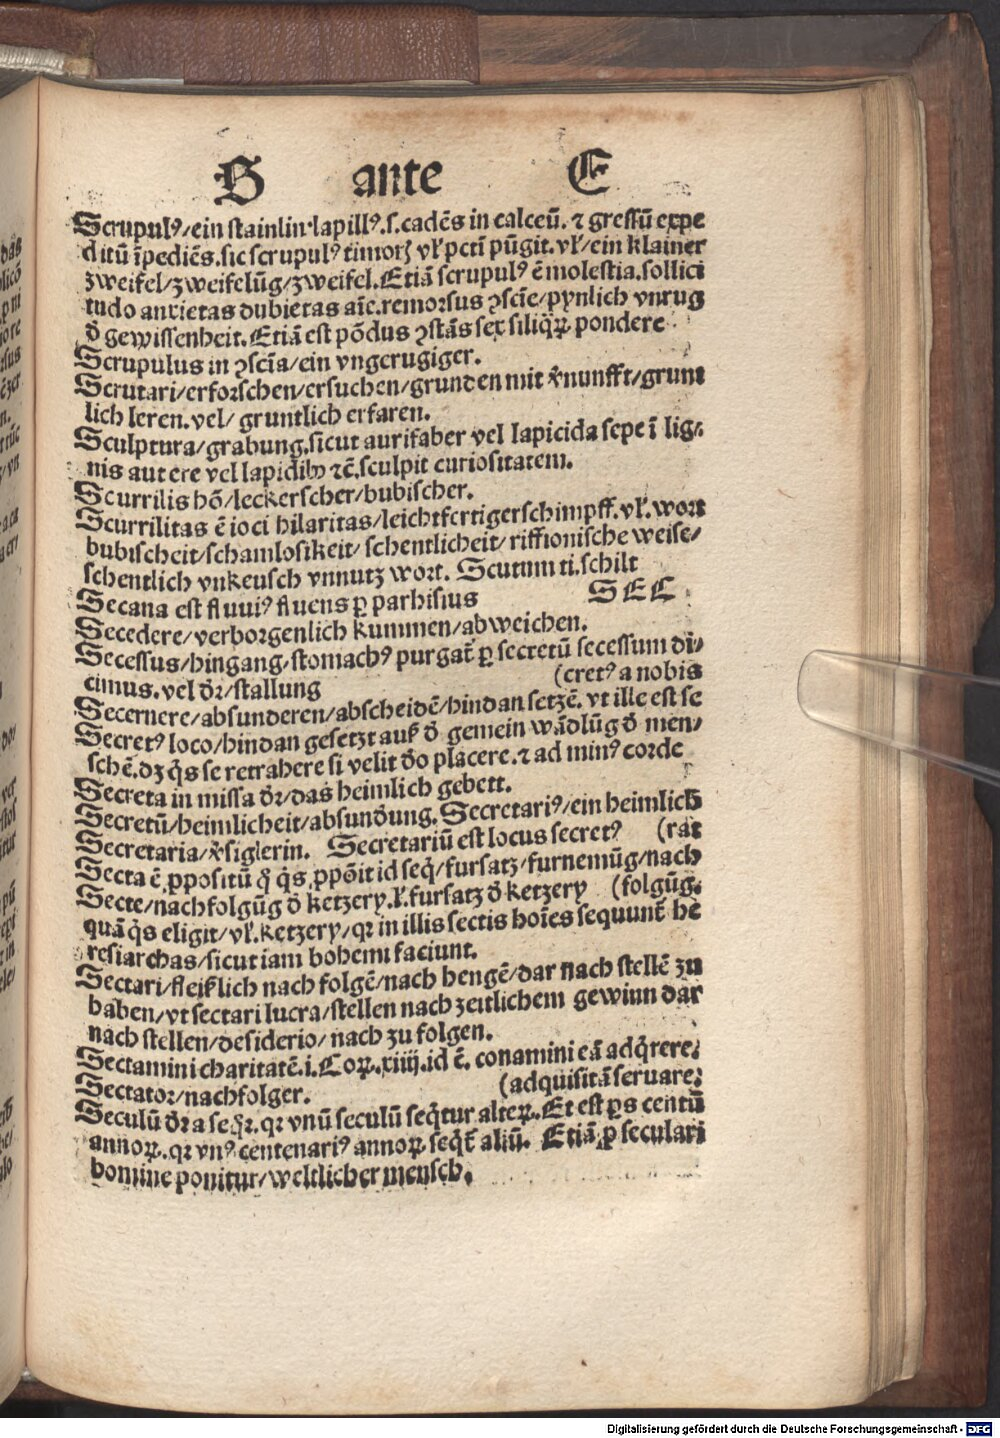 S ante E
Scrupulꝰ/ein stainlin·lapillꝰ.s.cadẽs in calceũ.⁊ gressũ expe
ditũ ĩpediẽs.sic scrupulꝰ timorꝭ vl̕ pctĩ pũgit.vl̕/ein klainer
zweifel/zweifelũg/zweifel.Etiã scrupulꝰ ẽ molestia.sollici
tudo anxietas dubietas aĩe.remorsus ꝯsciẽ/pynlich vnrug
d̕ gewissenheit.Etiã est põdus ꝯstãs sex siliq̃ꝝ pondere
Scrupulus in ꝯsciẽa/ein vngerugiger.
Scrutari/erforschen/ersuchen/grunden mit v̕nunfft/grunt
lich leren.vel/ gruntlich erfaren.
Sculptura/grabung.sicut aurifaber vel lapicida sepe ĩ lig⸗
nis aut ere vel lapidibꝰ ⁊c̃.sculpit curiositatem.
Scurrilis hõ/leckerscher/bubischer.
Scurrilitas ẽ ioci hilaritas/leichtfertiger schimpff.vl̕.wort
bubischeit/schamlosikeit/ schentlicheit/ riffionische weise/
schentlich vnkeusch vnnutz wort. Scutum ti.schilt
Secana est fluuiꝰ fluens ꝑ parhisius SEC
Secedere/verborgenlich kummen/abweichen.
Secessus/hingang/stomachꝰ purgat̃ ꝑ secretũ secessum di⸗
cimus.vel d̕r/stallung (cretꝰ a nobis
Secernere/absunderen/abscheidẽ/hindan setzẽ.vt ille est se
Secretꝰ loco/hindan gesetzt auß d̕ gemein wãdlũg d̕ men⸗
schẽ.dz q̃s se retrahere si velit d̕o placere.⁊ ad minꝰ corde
Secreta in missa d̕r/das heimlich gebett.
Secretũ/heimlicheit/absund̕ung.Secretariꝰ/ein heimlich
Secretaria/v̕siglerin. Secretariũ est locus secretꝰ (rat
Secta ẽ ꝓpositũ q̃ q̃s ꝓpõit id seq̃/fursatz/furnemũg/nach
Secte/nachfolgũg d̕ ketzery.l̕.fursatz d̕ ketzery (folgũg.
quã q̃s eligit/vl̕.ketzery/qꝛ in illis sectis hoĩes sequunt̃ he
resiarchas/sicut iam bohemi faciunt.
Sectari/fleißlich nach folgẽ/nach hengẽ/dar nach stellẽ zu
haben/vt sectari lucra/stellen nach zeitlichem gewinn dar
nach stellen/desiderio/ nach zu folgen.
Sectamini charitatẽ.i.Coꝝ.xiiij.id ẽ. conamini eã adq̃rere⁊
Sectator/nachfolger. (adquisitã seruare⁊
Seculũ d̕r a seq̃r.qꝛ vnũ seculũ seq̃tur alteꝝ.Et est ꝑs centũ
annoꝝ.qꝛ vnꝰ centenariꝰ annoꝝ seq̃t̃ aliũ. Etiã ꝓ seculari
homine ponitur/weltlicher mensch.
Digitalisierung gefördert durch die Deutsche Forschungsgemeinschaft - DFG